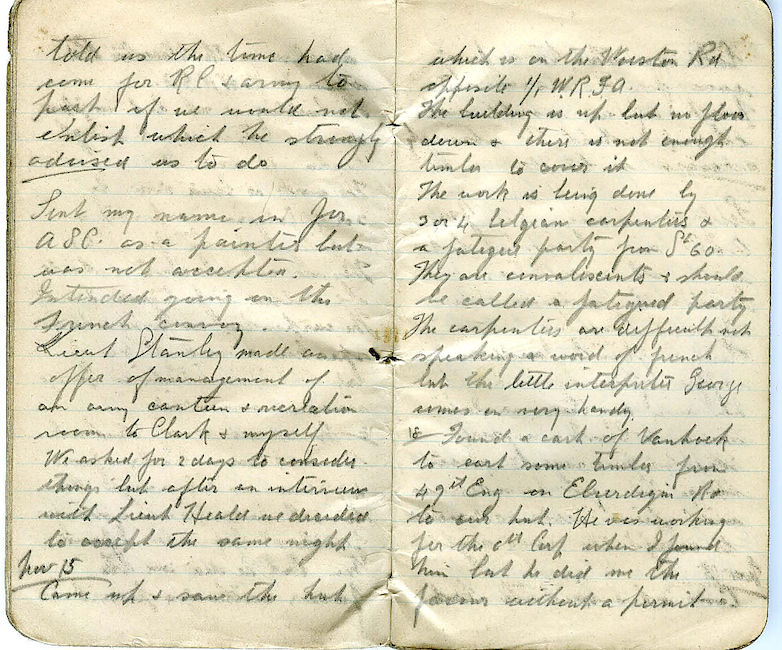 told us the time had
come for RC & army to
part if we would not
enlist which he strongly
advised us to do
Sent my name in for
ASC. as a painter but
was not accepted.
Intended going on the
French convoy.
Lieut Stanley made an
offer of management of
an army canteen & recreation
room to Clark & myself
We asked for 2 days to consider
things but after an interview
with Lieut Heald we decided
to accept the same night.
Nov 15
Came up & saw the hut
which is on the Woesten Rd
opposite 1/1 W.R.F.A.
The building is up but no floor
down & there is not enough
timber to cover it
The work is being done by
3 or 4 belgian carpenters &
a fatigue party from 60
They are convalescents & should
be called a fatigued party
The carpenters are difficult not
speaking a word of french
but the little interpreter George
comes in very handy
18 Found a cart of Vanhoek
to cart some timber from
49th Eng on Elverdinghe Rd
to our hut. He was working
for the 6th Corp when I found
him but he did me the
favour without a permit.